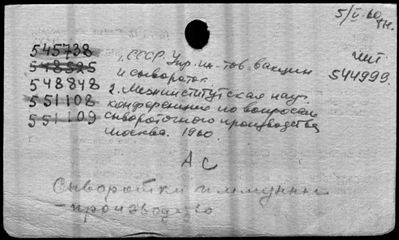 5/V-60
545738
548525
548848
551108
551109
1. СССР. Упр. ин-тов вакцин
и сывороток
2. Межинститутская науч.
конференция по вопросам
сывороточного производства
Москва. 1960.
544999.
АС
Сыворотки иммунные
- производство